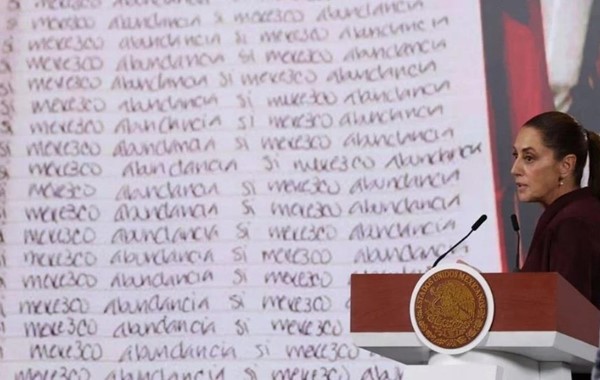 si merezco abundancia si merezco abundancia
si merezco abundancia si merezco abundancia
si merezco abundancia si merezco abundancia
si merezco abundancia si merezco abundancia
si merezco abundancia si merezco abundancia
si merezco abundancia si merezco abundancia
si merezco abundancia si merezco abundancia
si merezco abundancia si merezco abundancia
si merezco abundancia si merezco abundancia
si merezco abundancia si merezco abundancia
si merezco abundancia si merezco abundancia
si merezco abundancia si merezco abundancia
si merezco abundancia si merezco
si merezco abundancia si merezco
si merezco abundancia si merezco
merezco abundancia si merezco
merezco abundancia si merezco
UNIDOS MEXICANOS